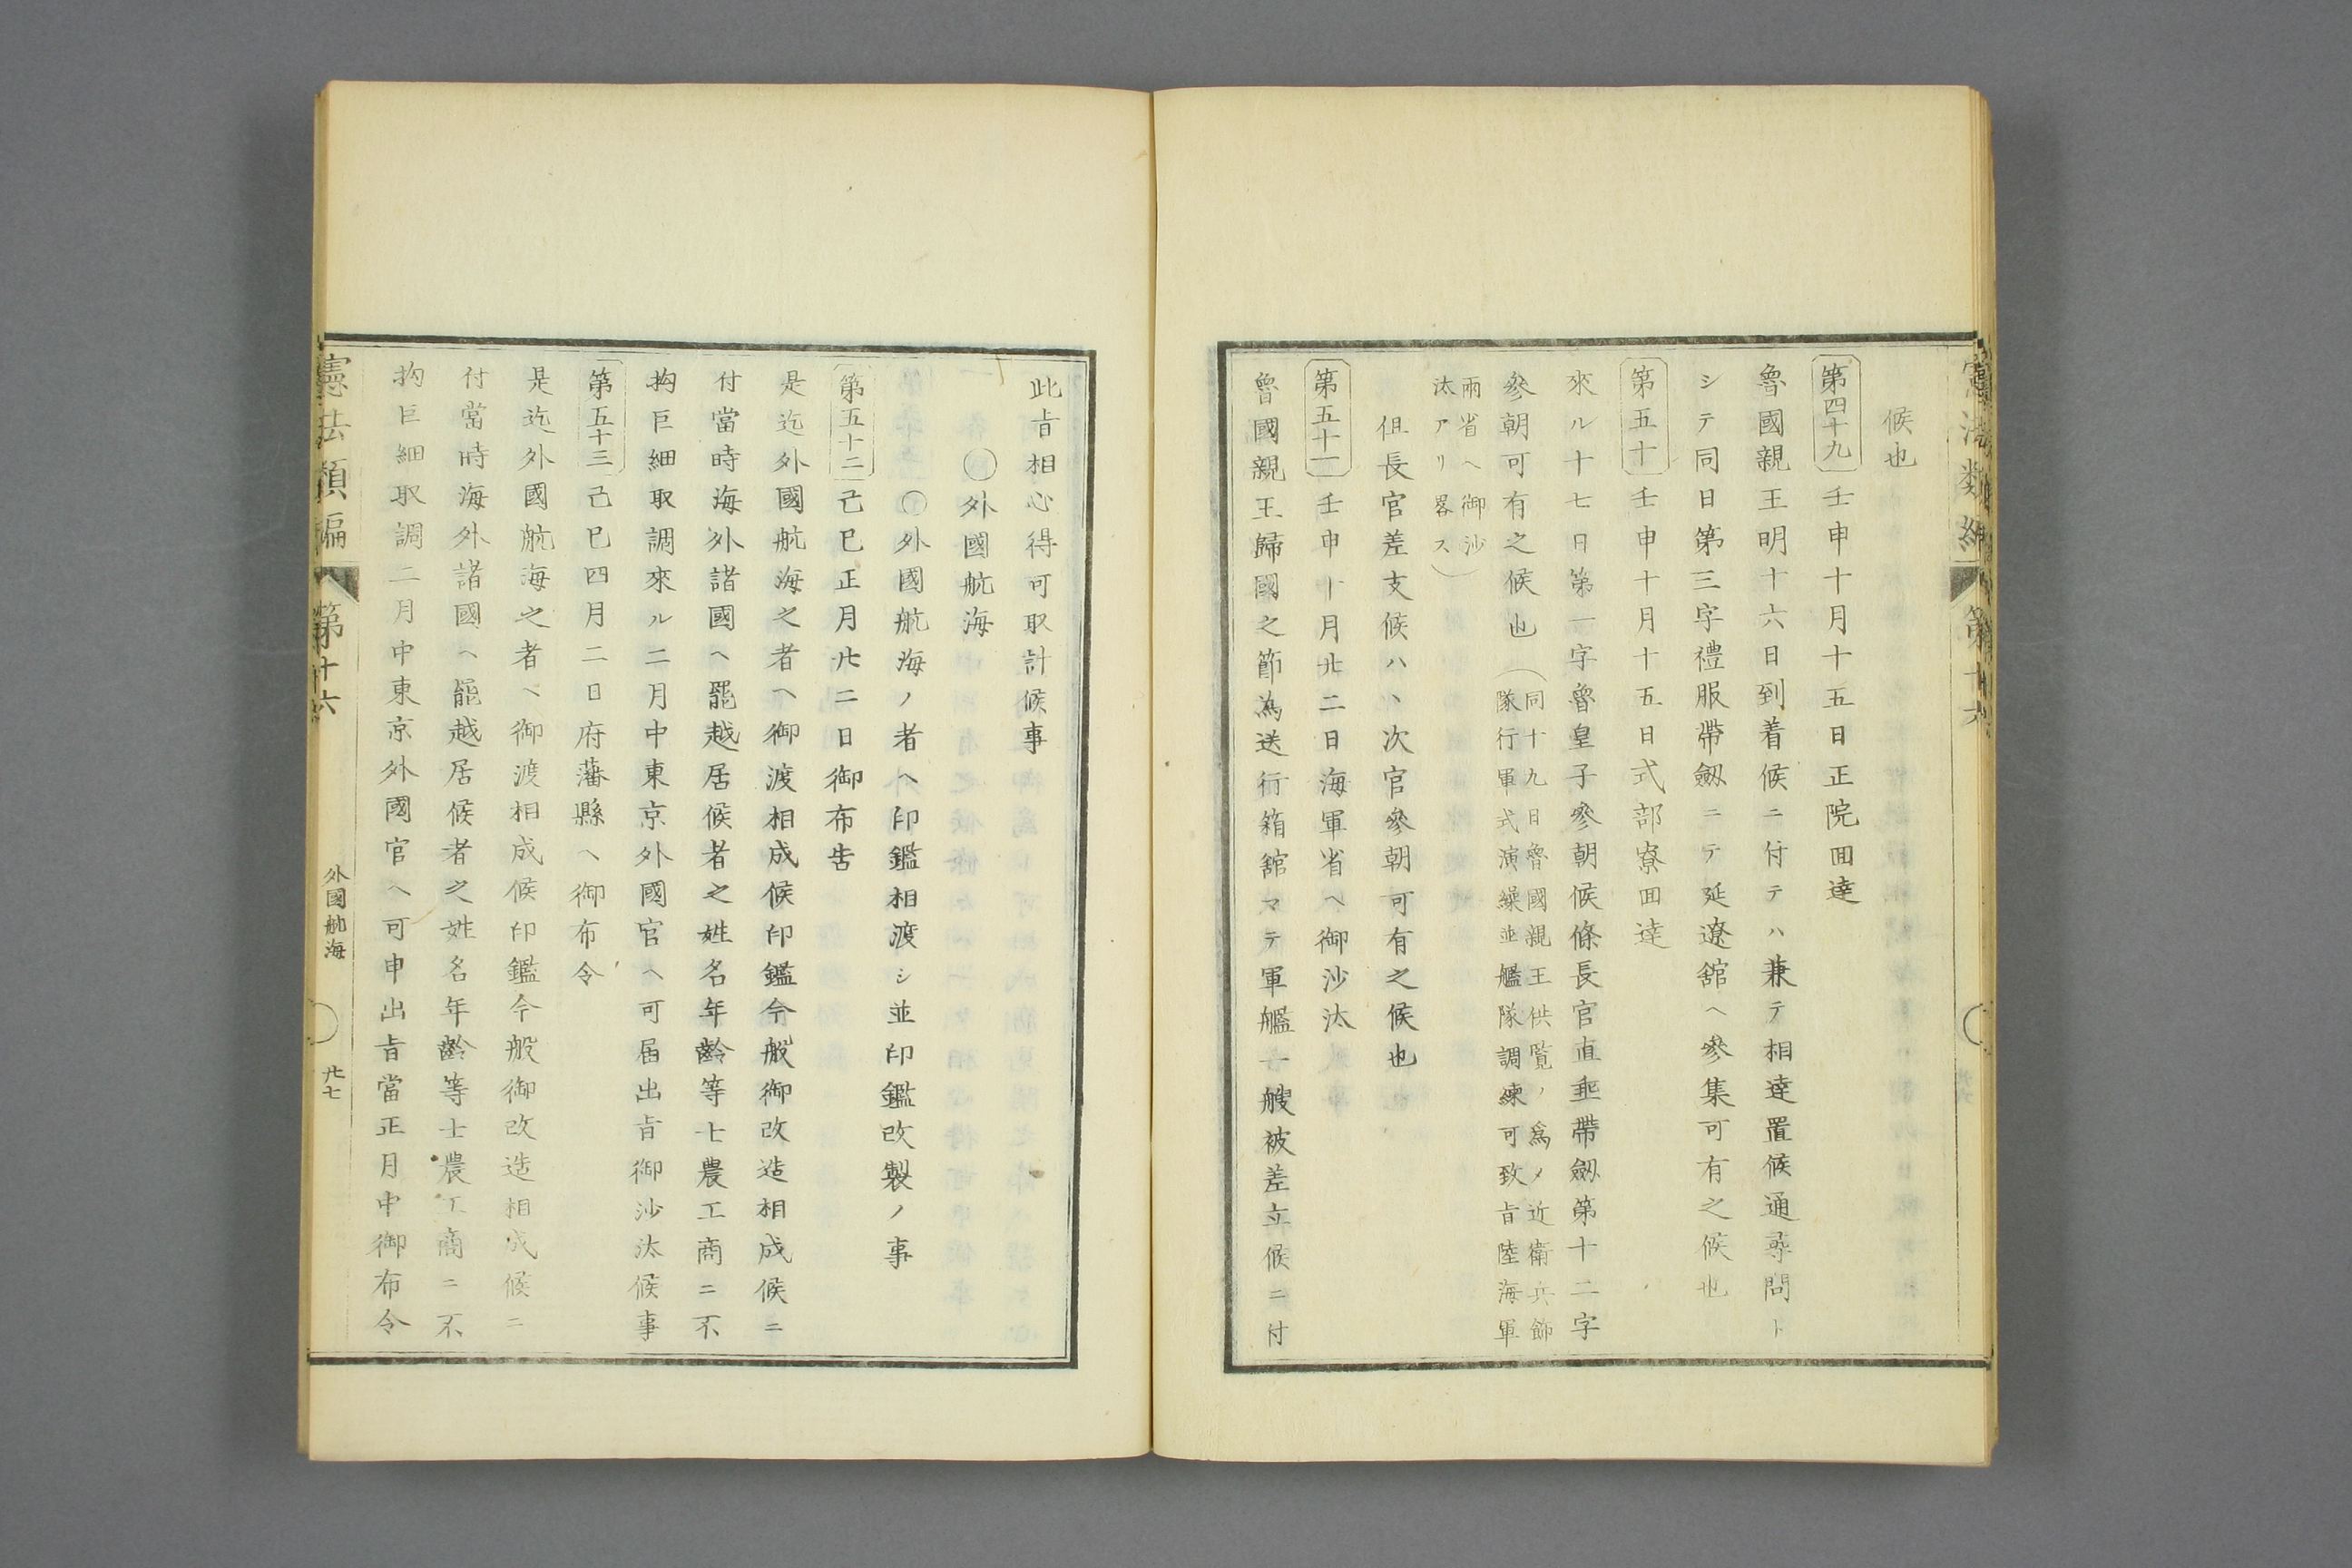 候也
第四十九 壬申十月十五日正院囬達
魯國親王明十六日到着候ニ付テハ兼テ相達置候通尋問ト
シテ同日第三字禮服帶劔ニテ延遼舘ヘ參集可有之候也
第五十 壬申十月十五日式部寮囬達
來ル十七日第一字魯皇子參朝候條長官直垂帶劔第十二字
參朝可有之候也(同十九日魯國親王供覧ノ爲メ近衛兵飾
隊行軍式演繰並艦隊調練可致旨陸海軍
兩省ヘ御沙
汰アリ畧ス)
但長官差支候ハヽ次官參朝可有之候也
第五十一 壬申十月廿二日海軍省ヘ御沙汰
魯國親王歸國之節為送行箱舘マテ軍艦一艘被差立候ニ付
此旨相心得可取計候事
〇外國航海
〇外國航海ノ者ヘ印鑑相渡シ並印鑑改製ノ事
第五十二 己巳正月廿二日御布告
是迄外國航海之者ヘ御渡相成候印鑑今般御改造相成候ニ
付當時海外諸國ヘ罷越居候者之姓名年齡等士農工商ニ不
拘巨細取調來ル二月中東京外國官ヘ可届出旨御沙汰候事
第五十三 己巳四月二日府藩縣ヘ御布令
是迄外國航海之者ヘ御渡相成候印鑑今般御改造相成候ニ
付當時海外諸國ヘ罷越居候者之姓名年齡等士農工商ニ不
拘巨細取調二月中東京外國官ヘ可申出旨當正月中御布令
憲法類編 第十六 外國航海 廿七